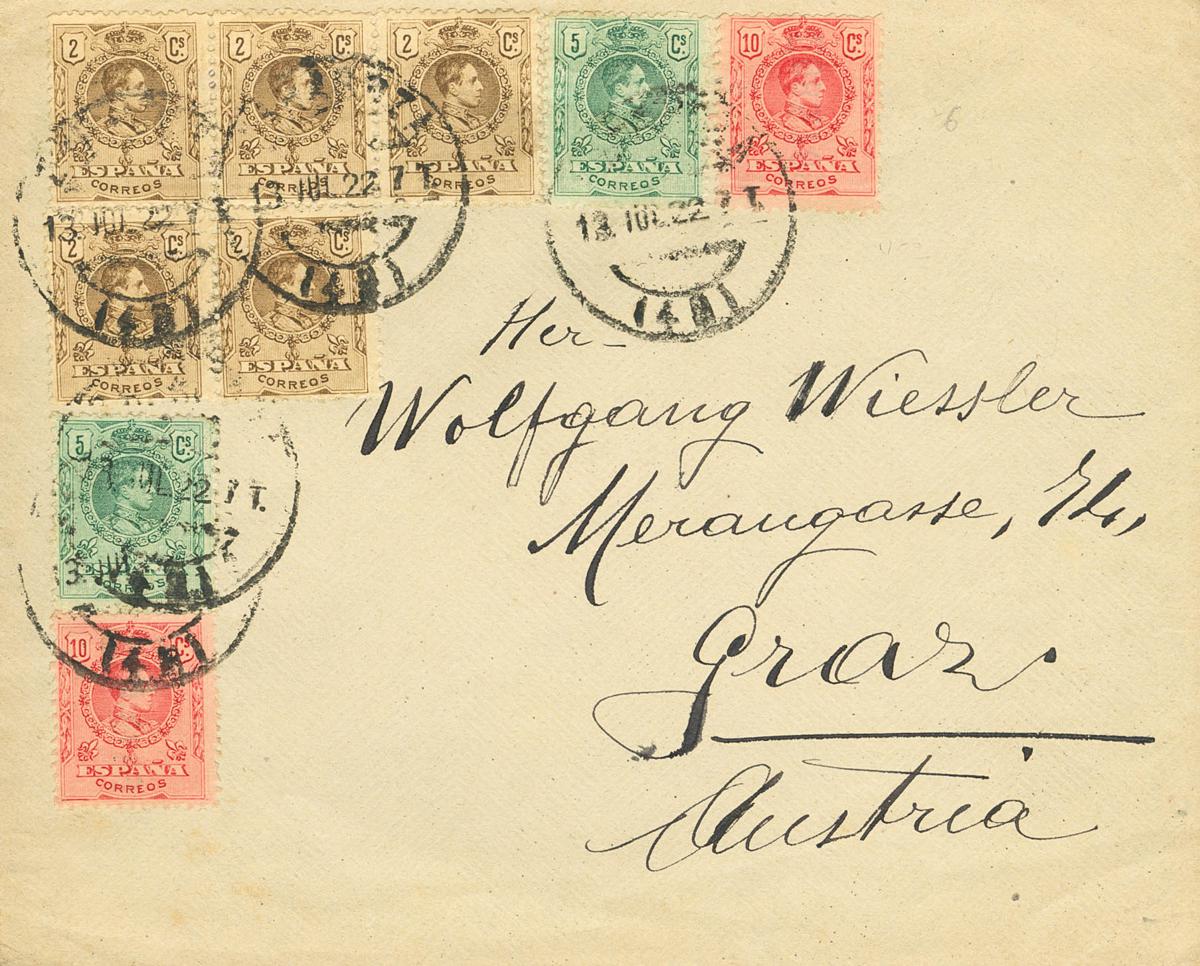 2 Cs. 2 Cs. 2 Cs. 5 Cs. 10 Cs.
ESPAÑA ESPAÑA ESPAÑA ESPAÑA ESPAÑA
CORREOS CORREOS CORREOS CORREOS CORREOS
13. JUL. 22 7 T. 13 JUL. 22 7 T. 13. JUL. 22 7 T.
2 Cs. 2 Cs.
ESPAÑA ESPAÑA
CORREOS CORREOS
Her
Wolfgang Wiessler
Merangasse,
Graz
Austria
5 Cs.
JUL. 22 7 T.
CORREOS
10 Cs.
ESPAÑA
CORREOS
6